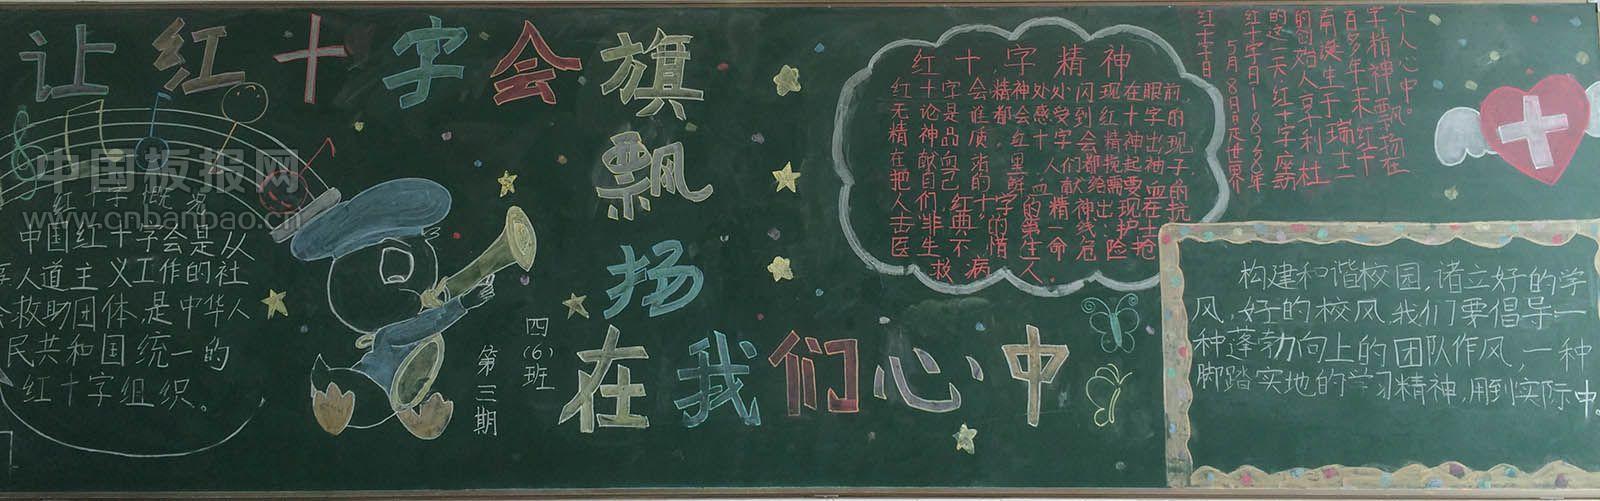 让红十字会旗
飘
扬
在我们心中
中国板报网
www.cnbanbao.cn
中国红十字会是从
事人道主义工作的社
会救助团体,是中华人
民共和国统一的
红十字组织。
四(6)班
第三期
红十字精神
红十字会精神处处闪现在眼前,
无论是谁都会感受到红十字的
精神品质。红十字会精神出现
在献血站里,人们都挽起袖子,
把自己的鲜血献给需要血的
人们。“红十字”精神出现在抗
击非典的第一线:护士
医生不惜生命危险抢
救病人.
红十字日
5月8日是世界
红十字日,1828年
的这一天红十字运动
的创始人亨利杜
南诞生于瑞士二
百多年来,红十
字精神飘扬在
个人心中。
构建和谐校园,诸立好的学
风,好的校风,我们要倡导一
种蓬勃向上的团队作风,一种
脚踏实地的学习精神,用到实际中。